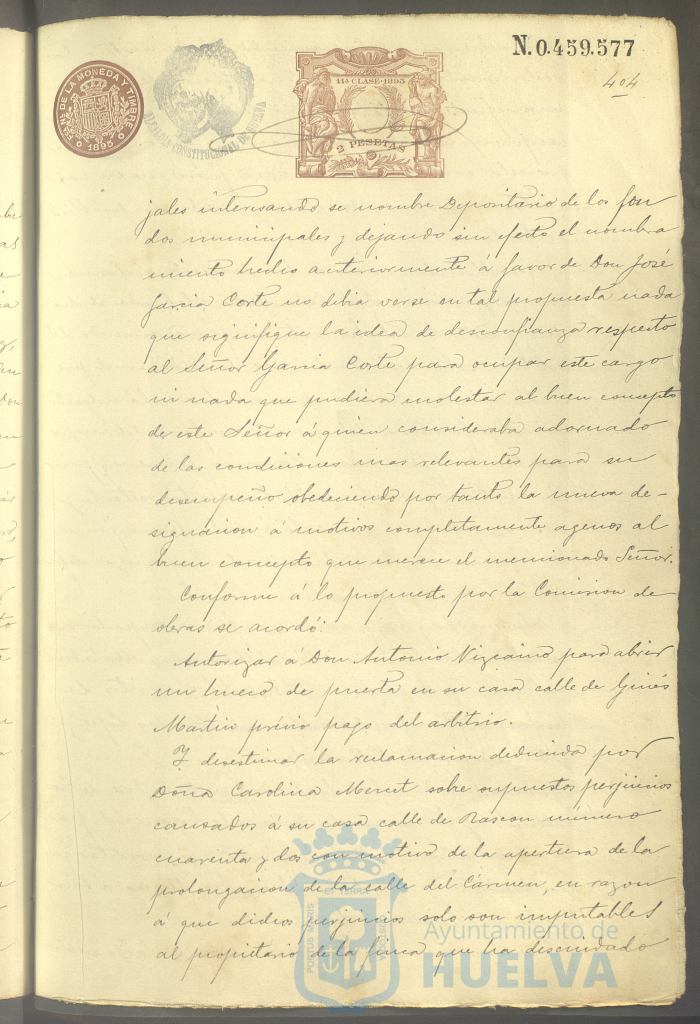 N.0.459.577
404
FÁB. NAL. DE LA MONEDA Y TIMBRE
1895
ALCALDIA CONSTITUCIONAL DE HUELVA
11ª CLASE-1895
2 PESETAS
jales interesando se nombre Depositario de los fon
dos municipales y dejando sin efecto el nombra
miento hecho anteriormente á favor de Don José
Garcia Corte no debia verse en tal propuesta nada
que signifique la idea de desconfianza respecto
al Señor Garcia Corte para ocupar este cargo
ni nada que pudiera molestar al buen concepto
de este Señor á quien consideraba adornado
de las condiciones mas relevantes para su
desempeño obedeciendo por tanto la nueva de-
signacion á motivos completamente agenos al
buen concepto que merece el mencionado Señor.
Conforme á lo propuesto por la Comision de
obras se acordó:
Autorizar á Don Antonio Vizcaino para abrir
un hueco de puerta en su casa calle de Ginés
Martin prévio pago del arbitrio.
Y desestimar la reclamacion deducida por
Doña Carolina Mercet sobre supuestos perjuicios
causados á su casa calle de Rascon número
cuarenta y dos con motivo de la apertura de la
prolongacion de la calle del Cármen, en razon
á que dichos perjuicios solo son imputables
al propietario de la finca que ha descuidado
PORTUS MARIS
ET TERRÆ
CUSTODIA
Ayuntamiento de
HUELVA